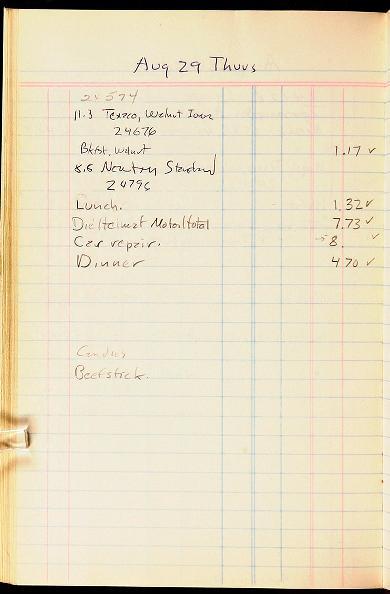 Aug 29 Thurs
24574
11.3 Texaco, Walnut Iowa
24676
Bkfst, Walnut 1.17 ✓
8.5 Newton Standard
24796
Lunch. 1.32 ✓
Motel total 7.73 ✓
Car repair. 8. ✓
Dinner 4.70 ✓
Candies
Beefstick.